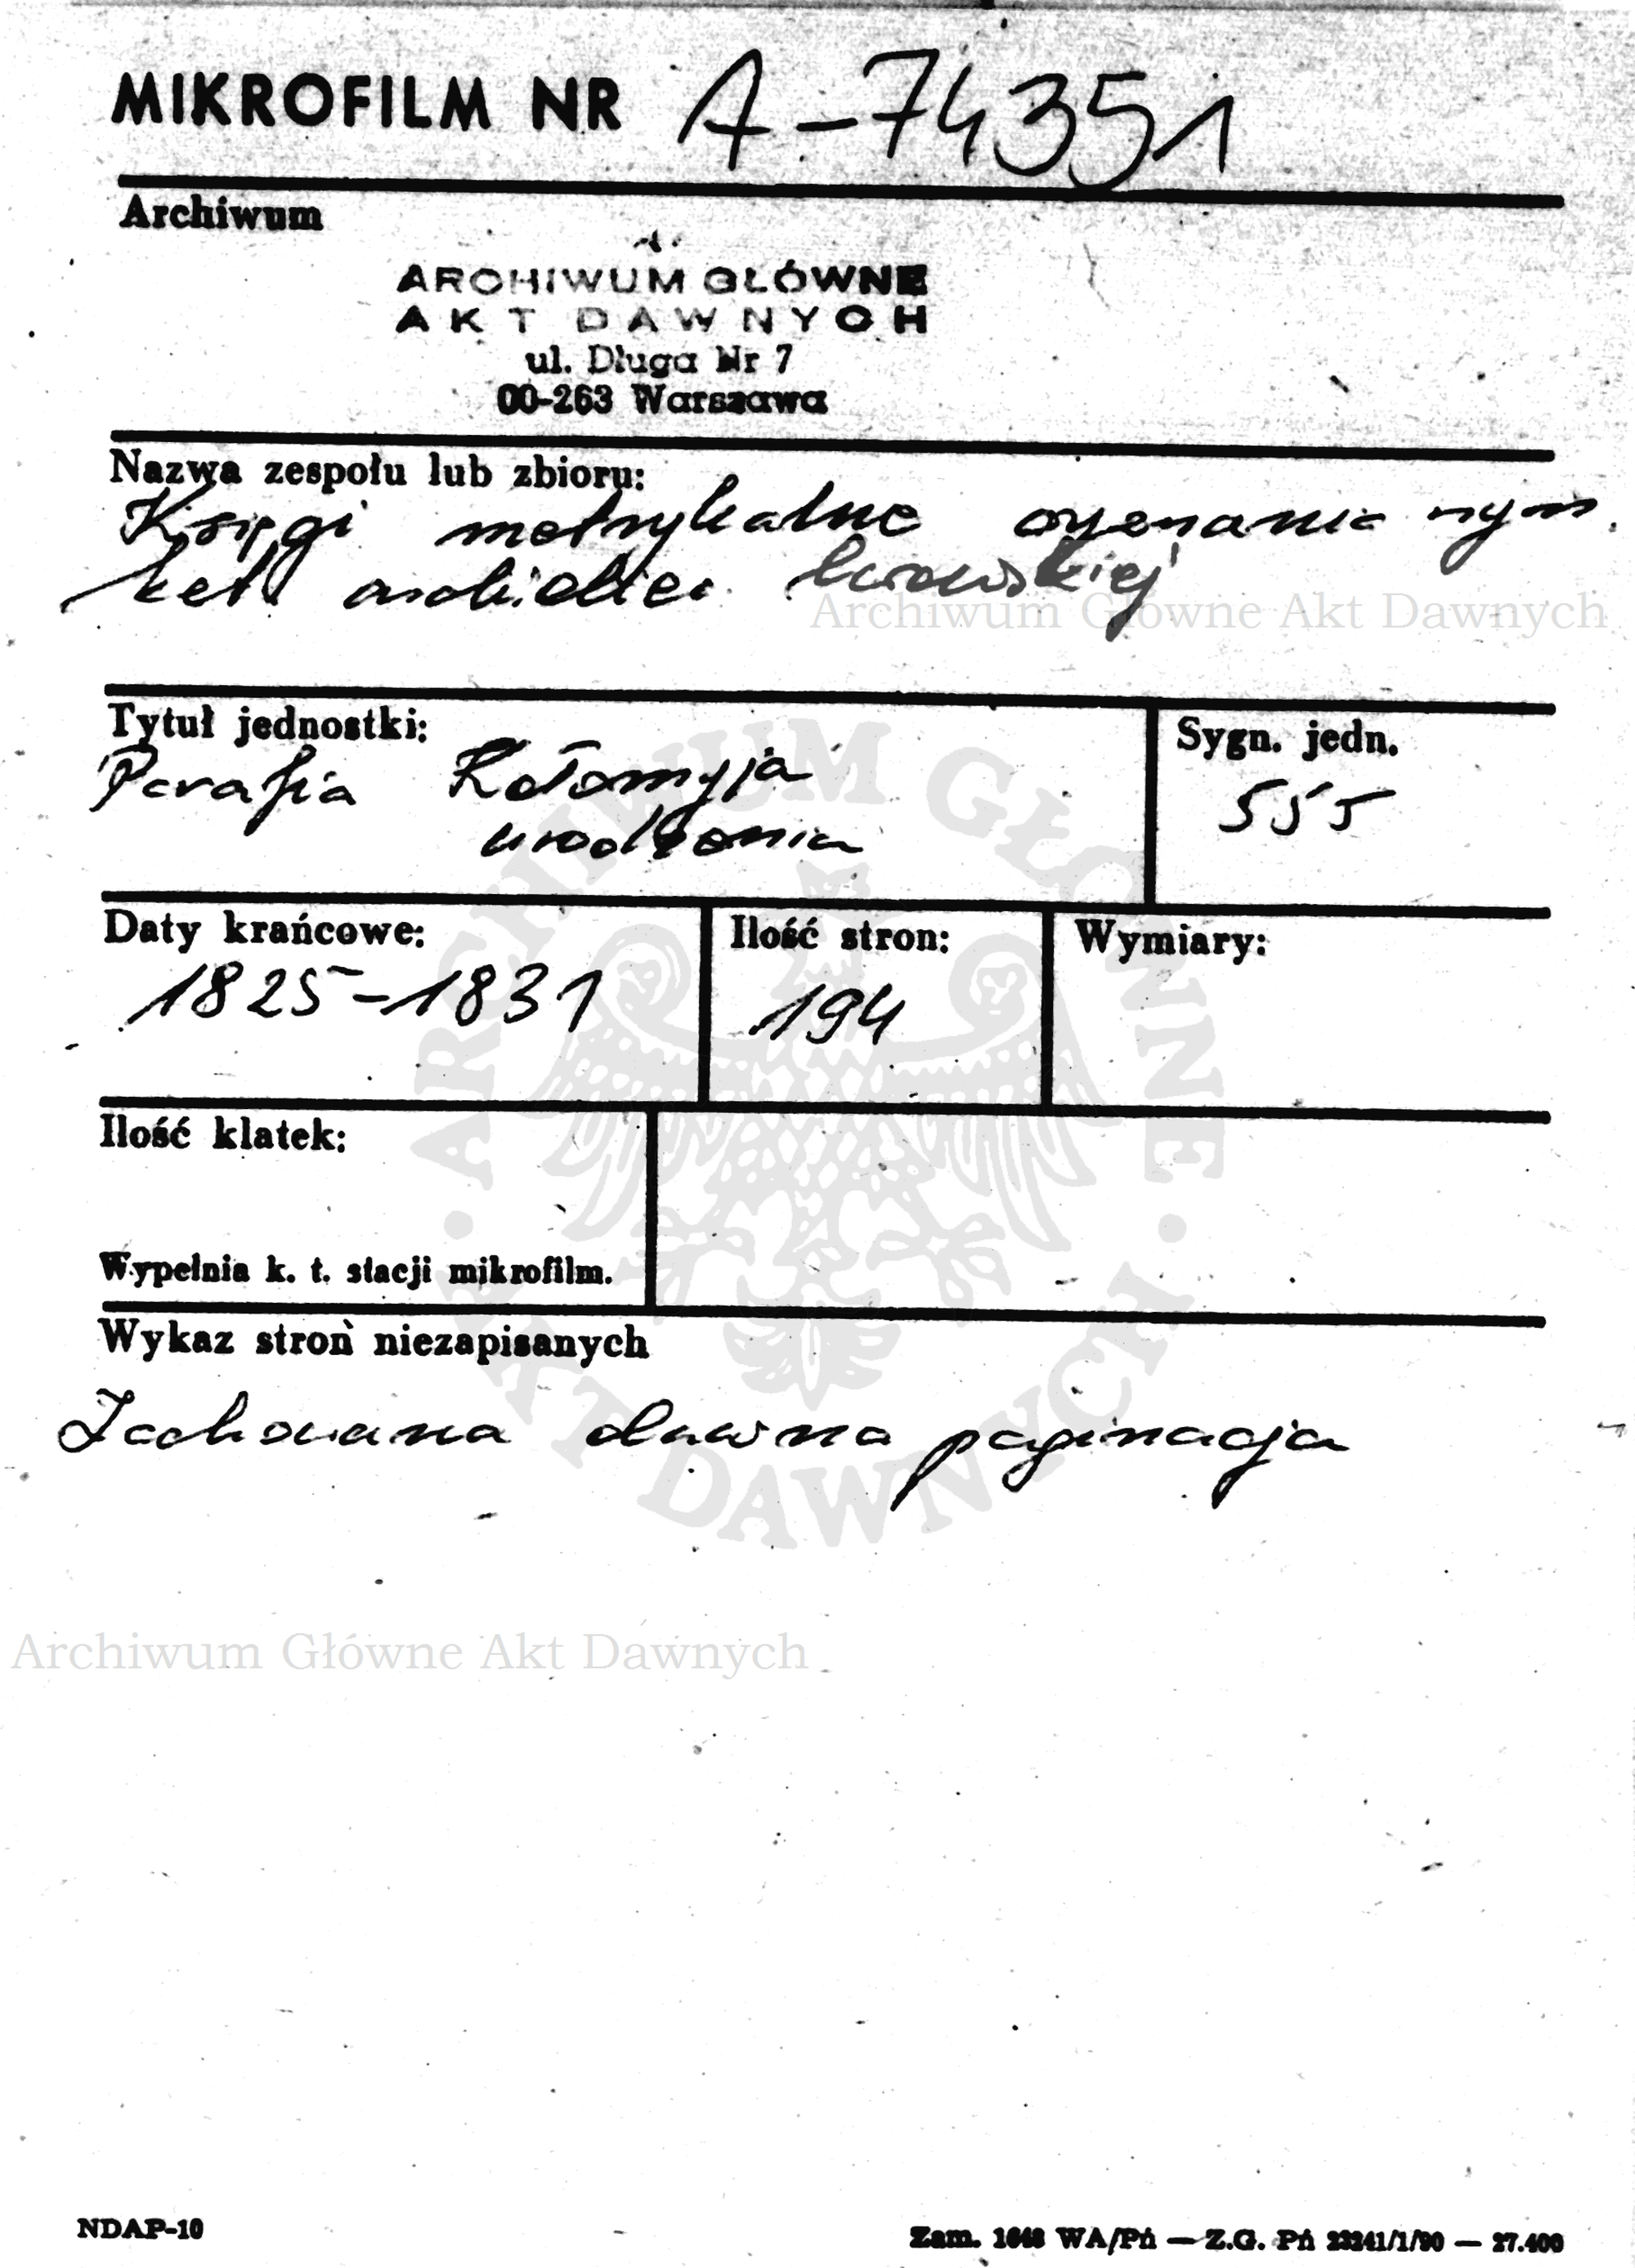 MIKROFILM NR A-74351
Archiwum
ARCHIWUM GŁÓWNE
AKT DAWNYCH
ul. Długa Nr 7
00-263 Warszawa
Nazwa zespołu lub zbioru:
Księgi metrykalne wyznania rzym.
kat. archidiec. lwowskiej
Archiwum Główne Akt Dawnych
Tytuł jednostki:
Sygn. jedn.
Parafia Kołomyja
urodzenia
555
Daty krańcowe:
Ilość stron:
Wymiary:
1825-1831
194
Ilość klatek:
Wypełnia k. t. stacji mikrofilm.
Wykaz stron niezapisanych
Zachowana dawna paginacja
ARCHIWUM GŁÓWNE AKT DAWNYCH
Archiwum Główne Akt Dawnych
NDAP-10
Zam. 1648 WA/Pń — Z.G. Pń 23241/1/90 — 27.400